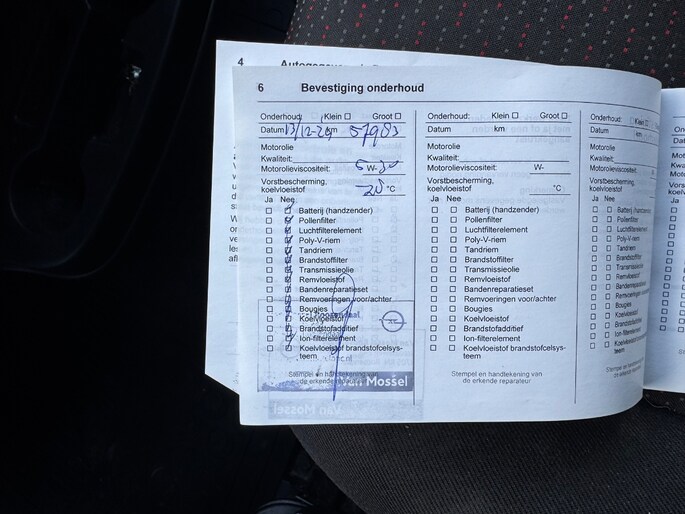 4
6 Bevestiging onderhoud
Onderhoud: Klein ☐ Groot ☐
Datum 13/12-24 km 57983
Motorolie
Kwaliteit:
Motorolieviscositeit: 5 W-30
Vorstbescherming,
koelvloeistof °C
Ja Nee
Batterij (handzender)
Pollenfilter
Luchtfilterelement
Poly-V-riem
Tandriem
Brandstoffilter
Transmissieolie
Remvloeistof
Bandenreparatieset
Remvoeringen voor/achter
Bougies
Koelvloeistof
Brandstofadditief
Ion-filterelement
Koelvloeistof brandstofcelsys-
teem
Stempel en handtekening van
de erkende reparateur
Van Mossel
Van Mossel
Onderhoud: Klein ☐ Groot ☐
Datum km
Motorolie
Kwaliteit:
Motorolieviscositeit: W-
Vorstbescherming,
koelvloeistof °C
Ja Nee
Batterij (handzender)
Pollenfilter
Luchtfilterelement
Poly-V-riem
Tandriem
Brandstoffilter
Transmissieolie
Remvloeistof
Bandenreparatieset
Remvoeringen voor/achter
Bougies
Koelvloeistof
Brandstofadditief
Ion-filterelement
Koelvloeistof brandstofcelsys-
teem
Stempel en handtekening van
de erkende reparateur
Onderhoud: ☐ Klein ☐
Datum km
Motorolie
Kwaliteit:
Motorolieviscositeit:
Vorstbescherming,
koelvloeistof
Ja Nee
Batterij (handzender)
Pollenfilter
Luchtfilterelement
Poly-V-riem
Tandriem
Brandstoffilter
Transmissieolie
Remvloeistof
Bandenreparatieset
Remvoeringen voor/achter
Bougies
Koelvloeistof
Brandstofadditief
Ion-filterelement
Koelvloeistof
teem
Stempel en handtekening
de erkende reparateur